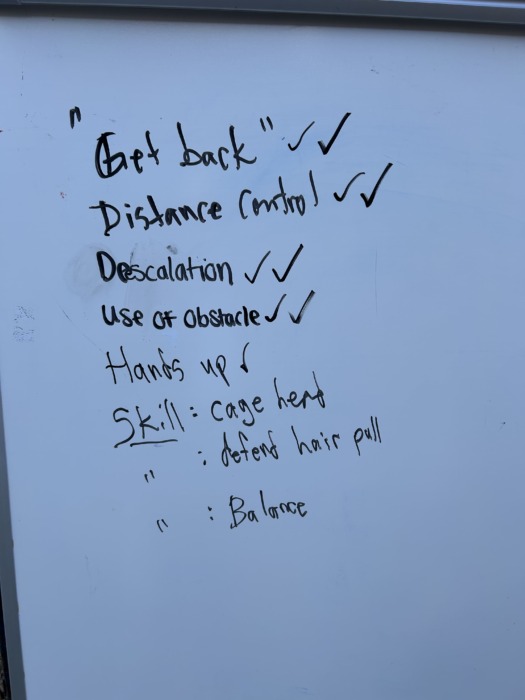 "Get back" ✓✓
Distance Control ✓✓
Descalation ✓✓
use of obstacle ✓✓
Hands up ✓
Skill: cage
" : defend hair pull
" : Balance